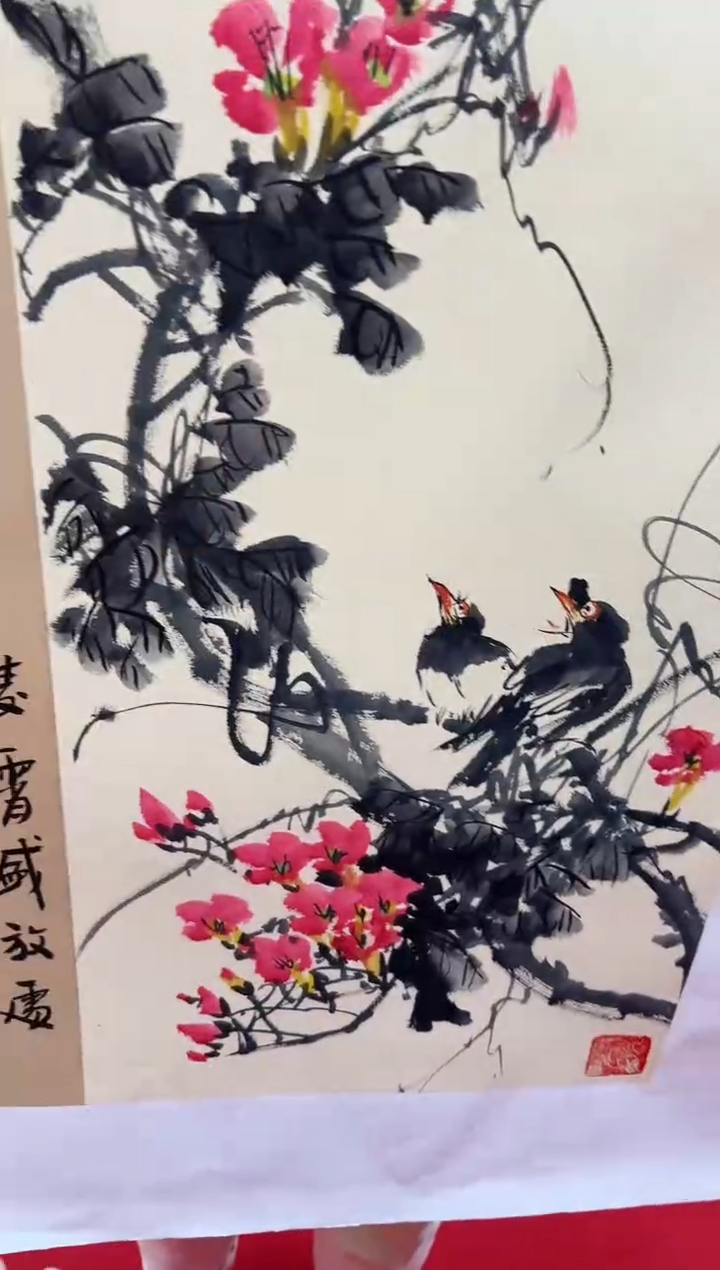 凌霄盛放處